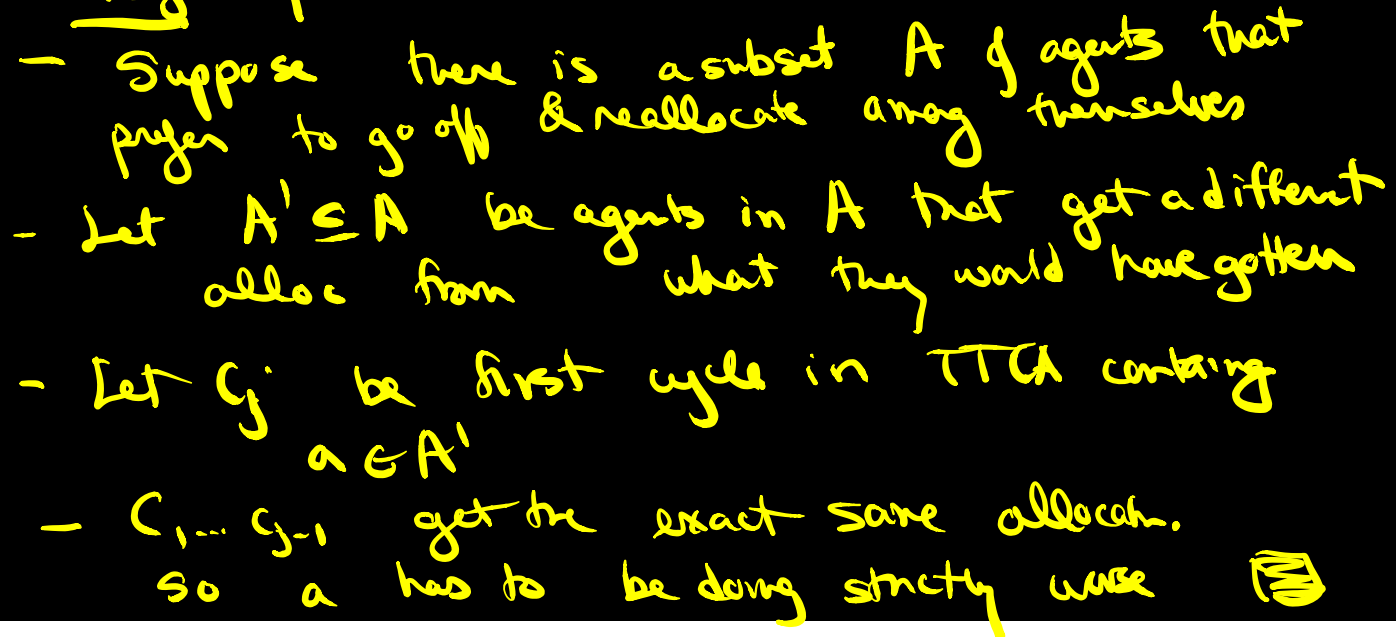 - Suppose there is a subset A of agents that
prefer to go off & reallocate among themselves
- Let A' ⊆ A be agents in A that get a different
alloc from what they would have gotten
- Let Cj be first cycle in TTCA containg
a ∈ A'
- C1... Cj-1 get the exact same allocatn.
so a has to be doing strictly worse